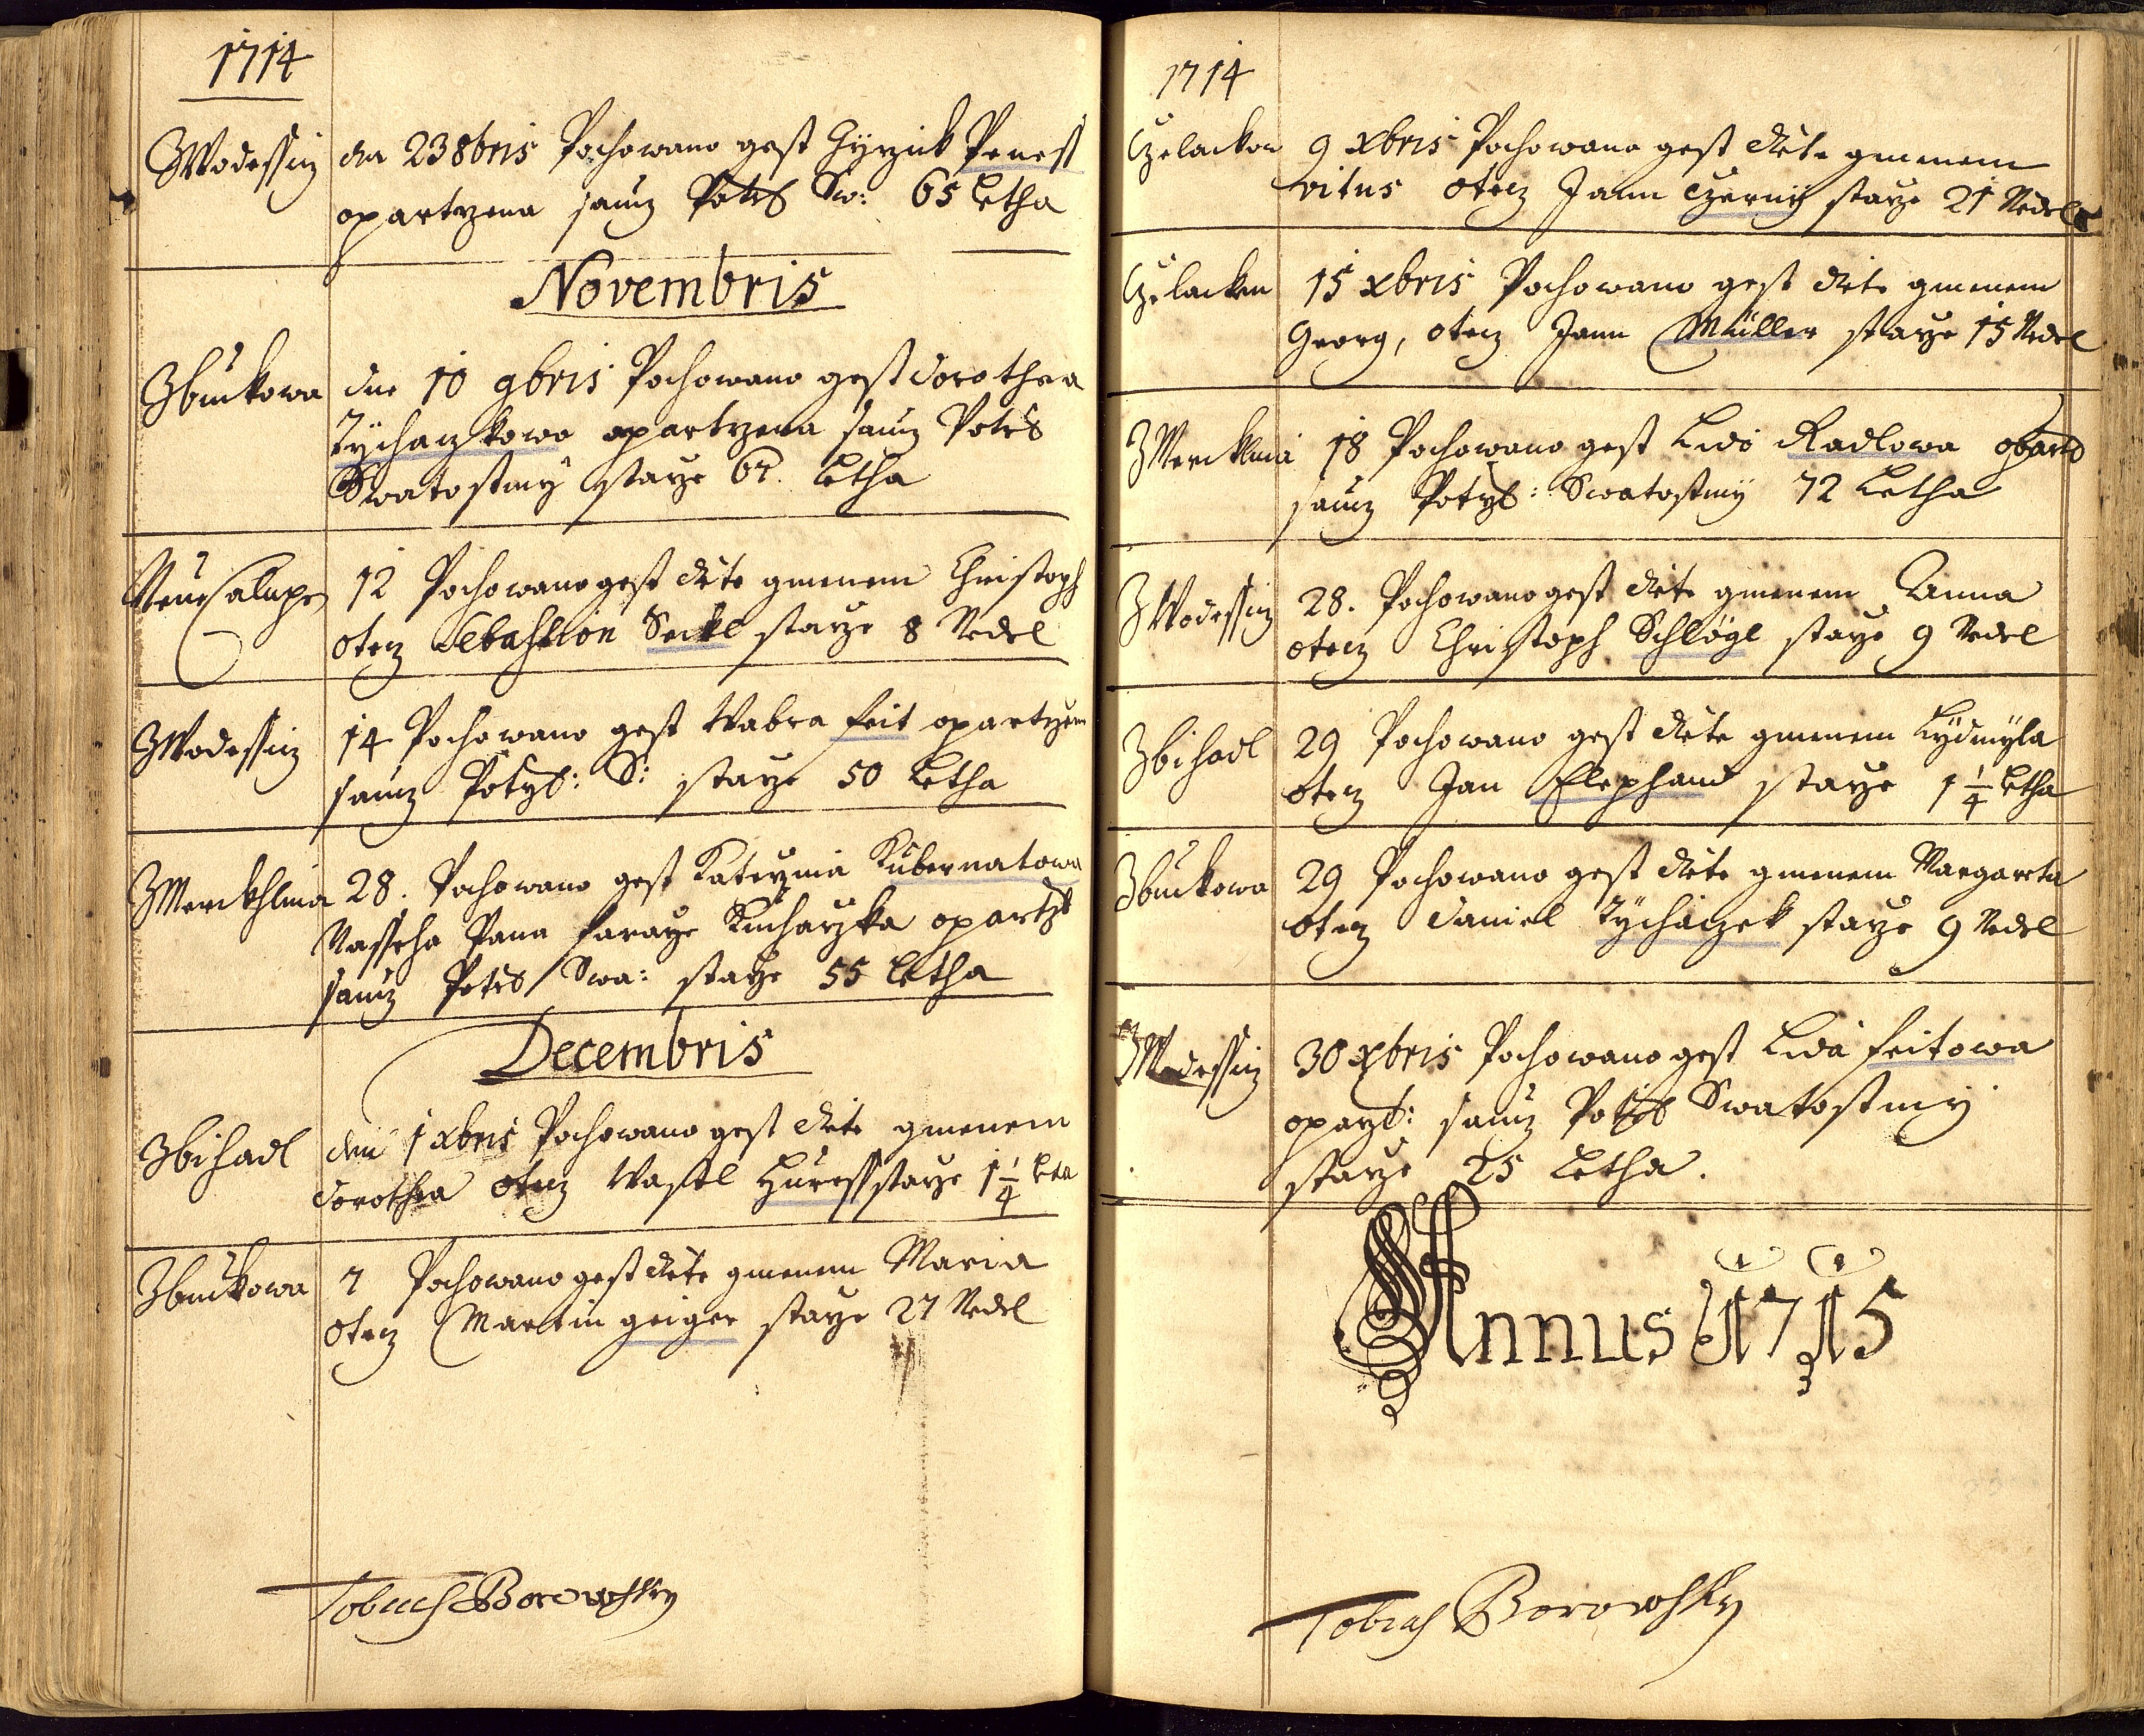 1714
Z Wodessin dne 23 8bris Pochowano gest Gyrzick Penest
opartzena jaucz Potrb Sw: 65 Letha
Novembris
Z buckowa dne 10 9bris Pochowano gest dorothea
Tychaczkowa opartzena jaucz Potrb
Swatostmy starze 67. Letha
Neue Calupe 12 Pochowano gest dite gmenem Christoph
otecz Sebastion Seckl starze 8 Nedel
Z Wodessin 14 Pochowano gest Wabra Feit opartzen
jaucz Potrzb: S: starze 50 Letha
Z Mercklina 28. Pochowano gest Katerzina Kubernatowa
Nasseho Pana Fararze Kucharzka opartzb
jaucz Potrb Swa: starze 55 Letha
Decembris
Z bihadl den 1 xbris Pochowano gest dite gmenem
dorothea otecz Wastl Huress starze 1 1/4 Leta
Z buckowa 7 Pochowano gest dite gmenem Maria
otecz Martin geiger starze 27 Nedel
Tobias Borowsky
1714
Czelackou 9 xbris Pochowano gest dite gmenem
vitus otecz Jann Czerny starze 21 Nedele
Czelacken 15 xbris Pochowano gest dite gmenem
Georg, otecz Jann Müller starze 15 Nedel
Z Mercklina 18 Pochowano gest Lida Radlowa opartz
jaucz Potrzb: Swatostmy 72 Letha
Z Wodessin 28. Pochowano gest dite gmenem Anna
otecz Christoph Schlögl starze 9 Nedel
Z bihadl 29 Pochowano gest dite gmenem Lydmyla
otecz Jan Elephand starze 1 1/4 Letha
Z buckowa 29 Pochowano gest dite gmenem Margareta
otecz daniel Tychaczek starze 9 Nedel
Z Wodessin 30 xbris Pochowano gest Lida Feitowa
oparzb: jaucz Potrzb Swatostmy
starze 25 Letha.
Annus 1715
Tobias Borowsky